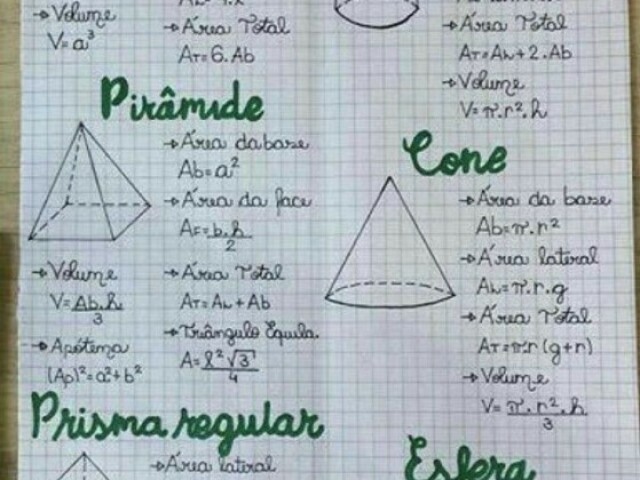 → Volume
V=a³
→ Área Total
AT=6.Ab
→ Área Total
AT=AL+2.Ab
→ Volume
V=π.r².h
Pirâmide
→ Área da base
Ab=a²
→ Área da face
AF=b.h/2
→ Volume
V=Ab.h/3
→ Área Total
AT=AL+Ab
→ Apótema
(Ap)²=a²+b²
→ Triângulo Equila.
A=l²√3/4
Cone
→ Área da base
Ab=π.r²
→ Área lateral
AL=π.r.g
→ Área Total
AT=πr(g+r)
→ Volume
V=π.r².h/3
Prisma regular
→ Área lateral
Esfera